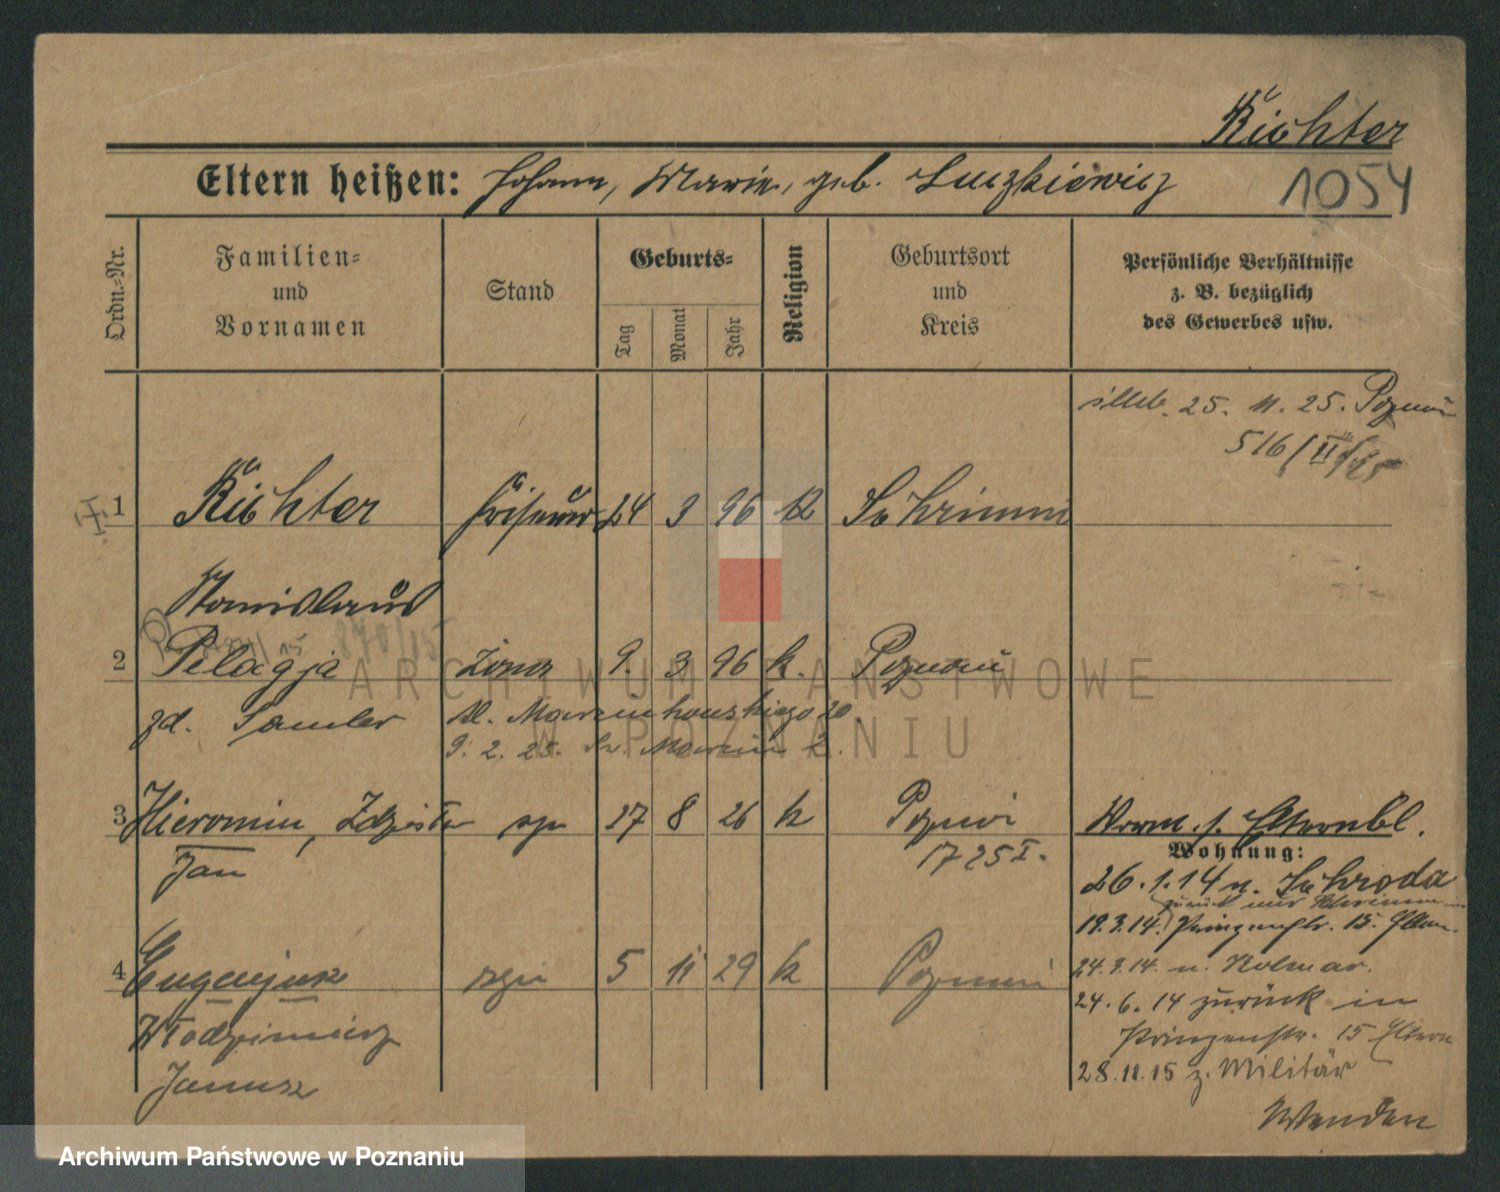 Richter
Eltern heißen: Johann, Marie, geb. Luczkiewicz
1054
Ordn.-Nr.
Familien- und Vornamen
Stand
Geburts-
Tag
Monat
Jahr
Religion
Geburtsort und Kreis
Persönliche Verhältnisse z. B. bezüglich des Gewerbes usw.
25. 11. 25. Poznań
516/II
1 Richter Friseur 24 3 96 K Schrimm
Stanislaus
2 Pelagja żona 9. 3 96 k. Poznań
zd. Samler
Marcinkowskiego 20
9. 2. 25. Św. Marcin 2.
3 Hieronim, Zdzisław syn 27 8 26 k Poznań
Jan
1725 I.
4 Eugenjusz syn 5 11 29 k Poznań
Włodzimierz
Janusz
Elternbl.
Wohnung:
26.1.14 n. Schroda
zurück
19.3.14. Prinzenstr. 15. Eltern.
24.3.14. n. Kolmar.
24.6.14 zurück in
Prinzenstr. 15 Eltern
28.11.15 z. Militär
Wenden
ARCHIWUM PAŃSTWOWE
W POZNANIU
Archiwum Państwowe w Poznaniu